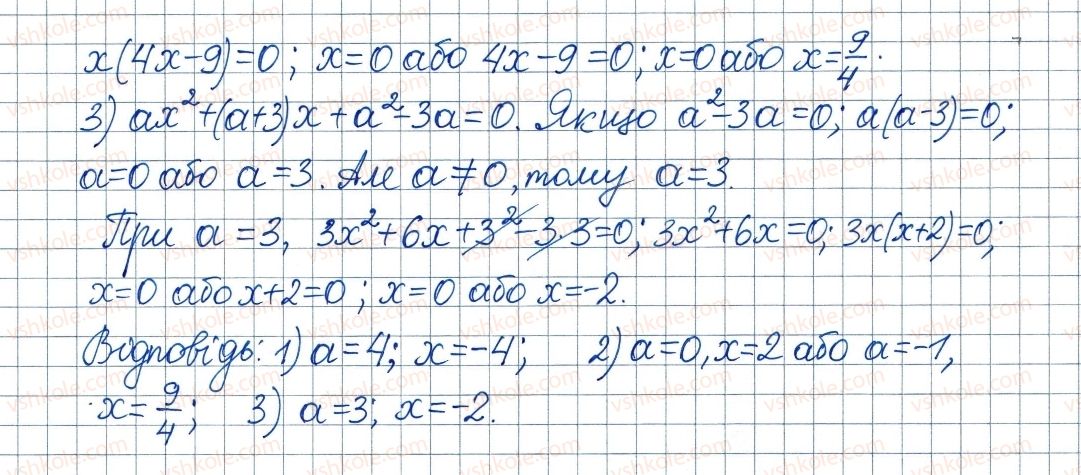 x(4x-9)=0; x=0 або 4x-9=0; x=0 або x=9/4.
3) ax²+(a+3)x+a²-3a=0. Якщо a²-3a=0; a(a-3)=0;
a=0 або a=3. Але a≠0, тому a=3.
При a=3, 3x²+6x+3²-3·3=0; 3x²+6x=0; 3x(x+2)=0;
x=0 або x+2=0; x=0 або x=-2.
Відповідь: 1) a=4; x=-4; 2) a=0, x=2 або a=-1,
x=9/4; 3) a=3; x=-2.